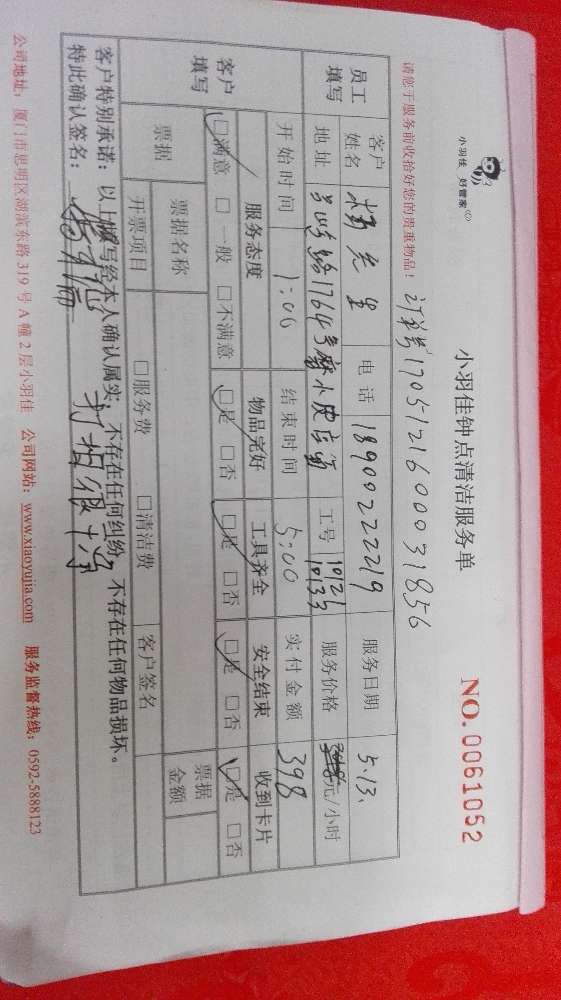 小羽佳 好管家
小羽佳钟点清洁服务单
NO.0061052
请您于服务前收拾好您的贵重物品！
订单号170512160031856
员工填写
客户姓名 杨先生 电话 18900222219 服务日期 5.13.
地址 1764号 工号 10121 10133 服务价格 元/小时
开始时间 1:00 结束时间 5:00 实付金额 398
客户填写
服务态度 物品完好 工具齐全 安全结束 收到卡片
□满意 □一般 □不满意 □是 □否 □是 □否 □是 □否 □是 □否
票据 票据名称 票据金额
开票项目 □服务费 □清洁费 客户签名
客户特别承诺：以上填写经本人确认属实，不存在任何纠纷，不存在任何物品损坏。
特此确认签名： 打扫很干净
公司地址：厦门市思明区湖滨东路319号A幢2层小羽佳 公司网站：www.xiaoyujia.com 服务监督热线：0592-5888123